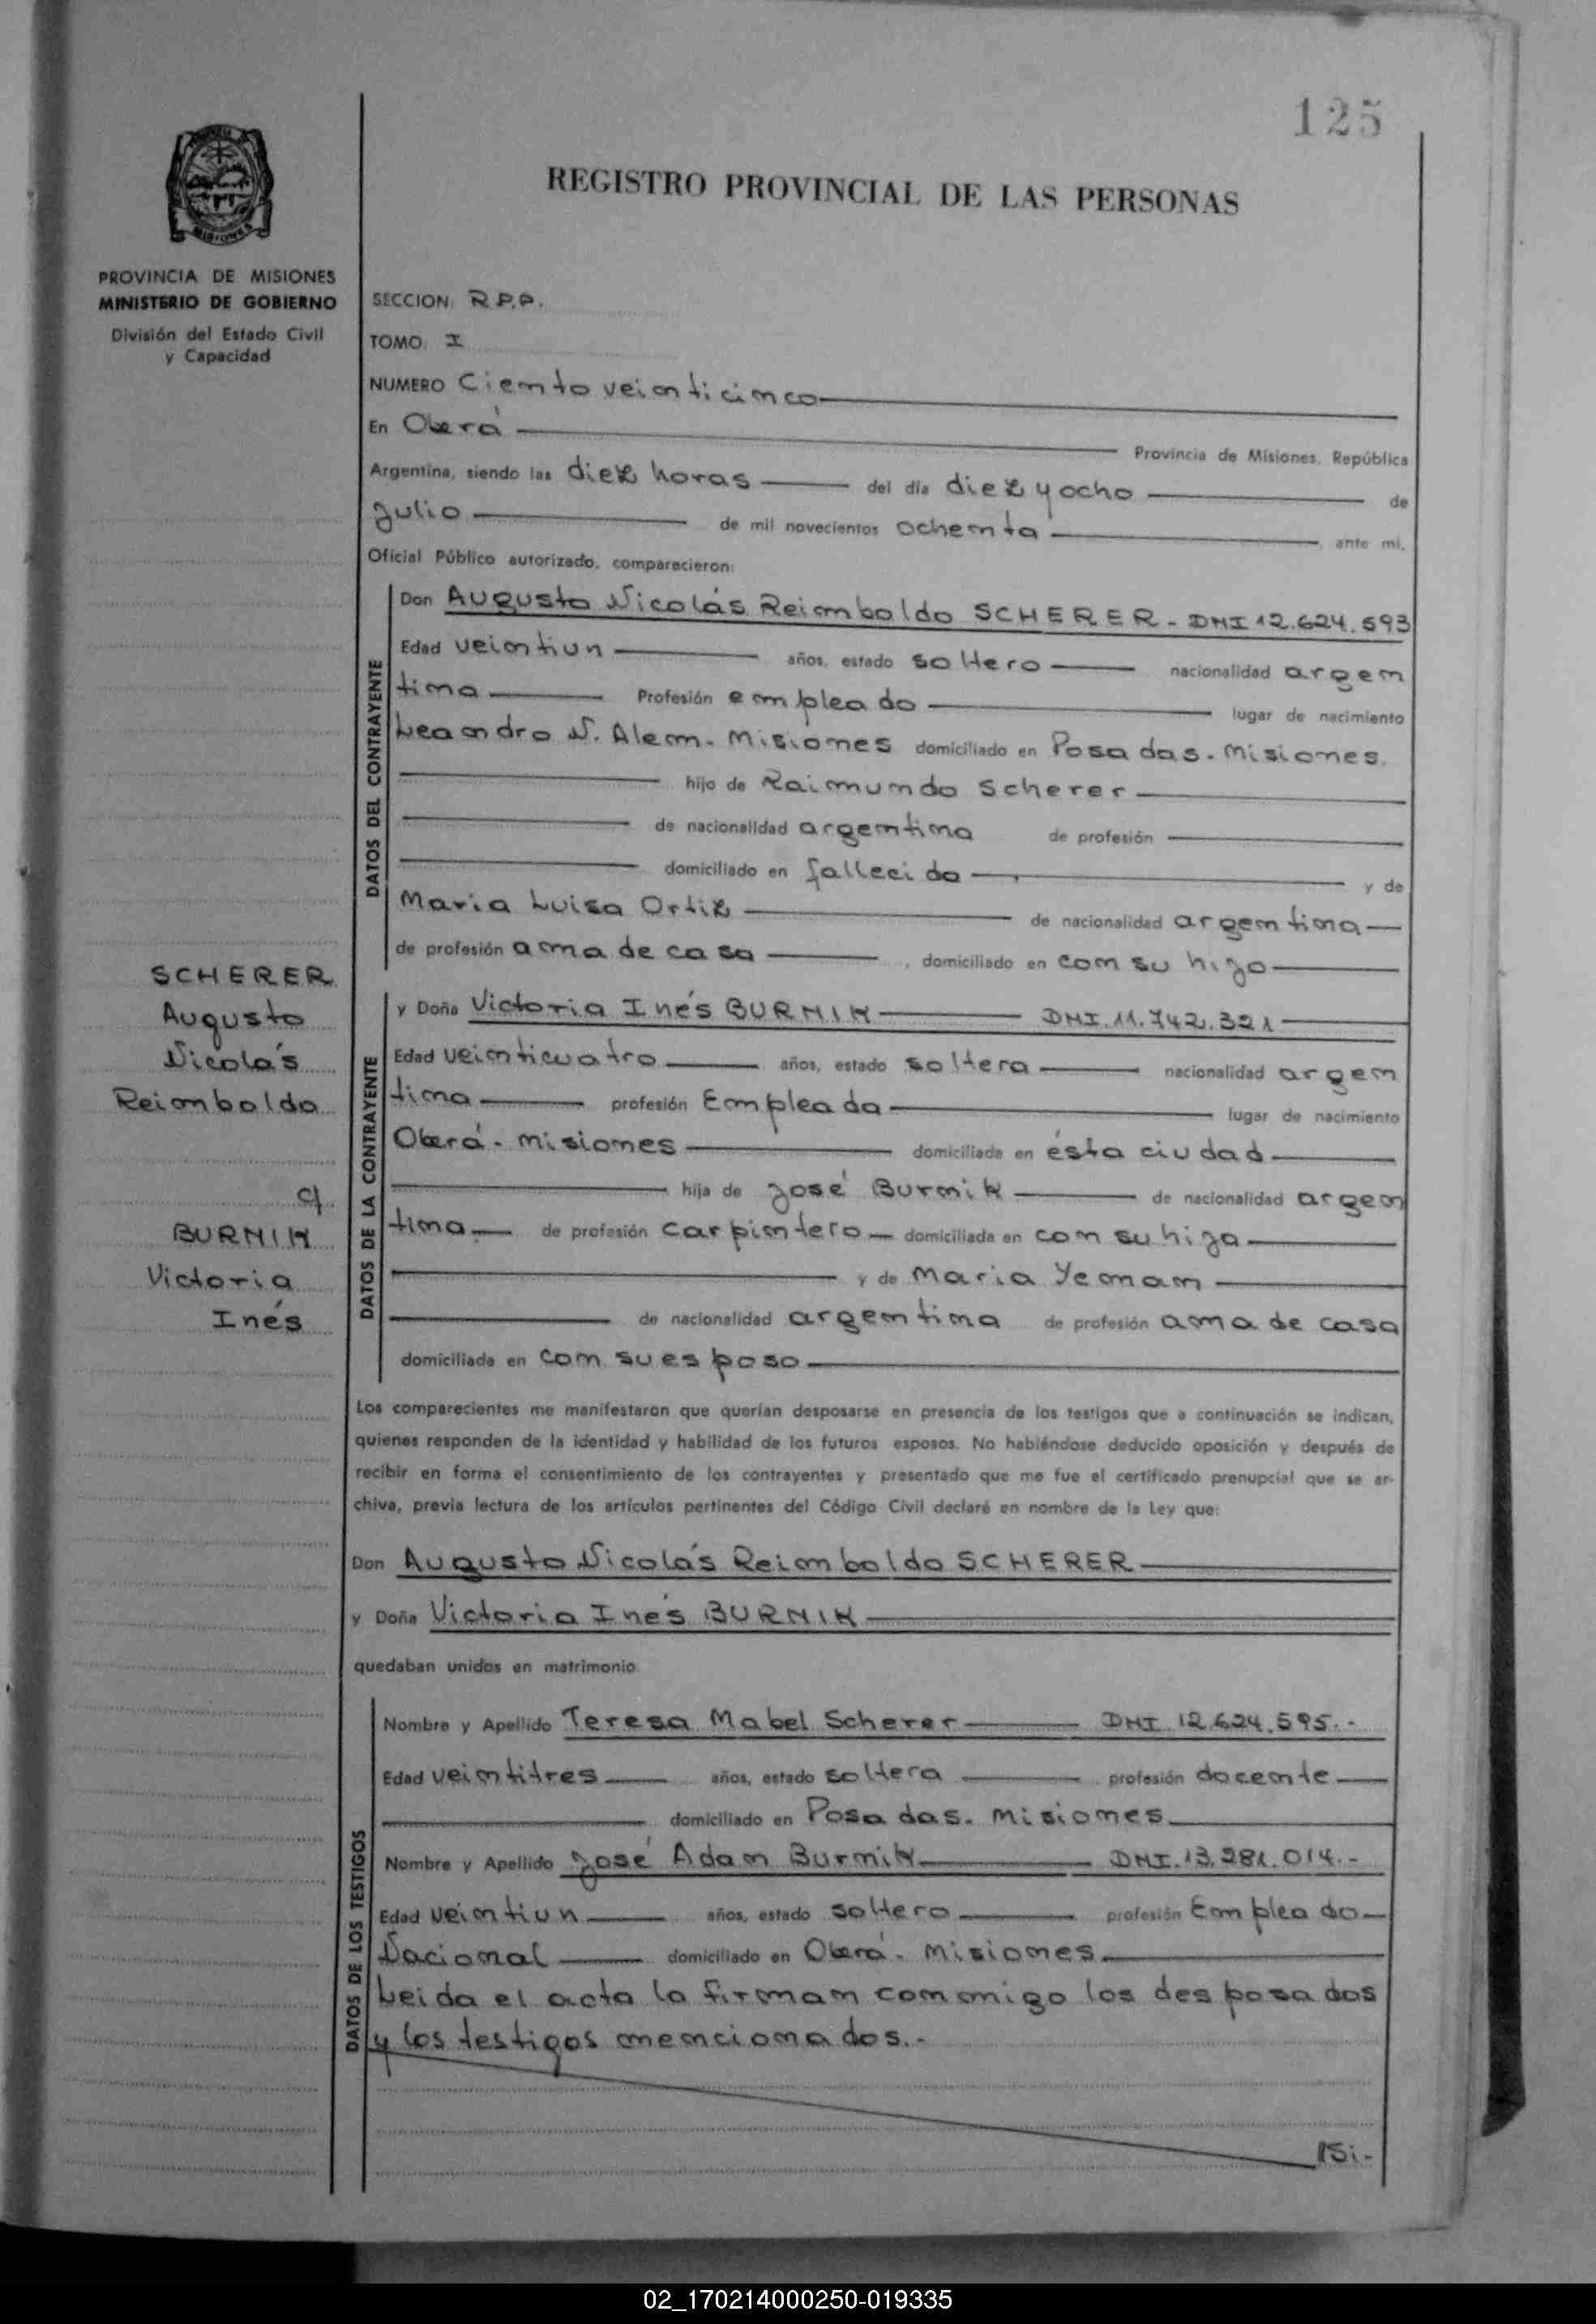 125
REGISTRO PROVINCIAL DE LAS PERSONAS
MISIONES
PROVINCIA DE MISIONES
MINISTERIO DE GOBIERNO
División del Estado Civil
y Capacidad
SECCION: R.P.P.
TOMO: I
NUMERO Ciento veinticinco
En Oberá Provincia de Misiones, República
Argentina, siendo las diez horas del día diez y ocho de
Julio de mil novecientos ochenta, ante mi,
Oficial Público autorizado, comparecieron:
DATOS DEL CONTRAYENTE
Don Augusto Nicolás Reinboldo SCHERER - DNI 12.624.593
Edad veintiun años, estado soltero nacionalidad argen
tina Profesión empleado lugar de nacimiento
Leandro N. Alem. Misiones domiciliado en Posadas. Misiones.
hijo de Raimundo Scherer
de nacionalidad argentina de profesión
domiciliado en fallecido y de
Maria Luisa Ortiz de nacionalidad argentina
de profesión ama de casa, domiciliado en con su hijo
SCHERER
Augusto
Nicolás
Reinboldo
c/
BURNIK
Victoria
Inés
DATOS DE LA CONTRAYENTE
y Doña Victoria Inés BURNIK DNI. 11.742.321
Edad veinticuatro años, estado soltera nacionalidad argen
tina profesión Empleada lugar de nacimiento
Oberá - Misiones domiciliada en ésta ciudad
hija de José Burnik de nacionalidad argen
tina de profesión carpintero domiciliada en con su hija
y de Maria Yenan
de nacionalidad argentina de profesión ama de casa
domiciliada en con su esposo
Los comparecientes me manifestaron que querían desposarse en presencia de los testigos que a continuación se indican,
quienes responden de la identidad y habilidad de los futuros esposos. No habiéndose deducido oposición y después de
recibir en forma el consentimiento de los contrayentes y presentado que me fue el certificado prenupcial que se ar-
chiva, previa lectura de los artículos pertinentes del Código Civil declaré en nombre de la Ley que:
Don Augusto Nicolás Reinboldo SCHERER
y Doña Victoria Inés BURNIK
quedaban unidos en matrimonio.
DATOS DE LOS TESTIGOS
Nombre y Apellido Teresa Mabel Scherer DNI. 12.624.595.-
Edad veintitres años, estado soltera profesión docente
domiciliado en Posadas. Misiones
Nombre y Apellido José Adan Burnik DNI. 13.281.014.-
Edad veintiun años, estado soltero profesión Empleado
Nacional domiciliado en Oberá - Misiones
Leida el acta la firman conmigo los desposados
y los testigos mencionados.-
02_170214000250-019335